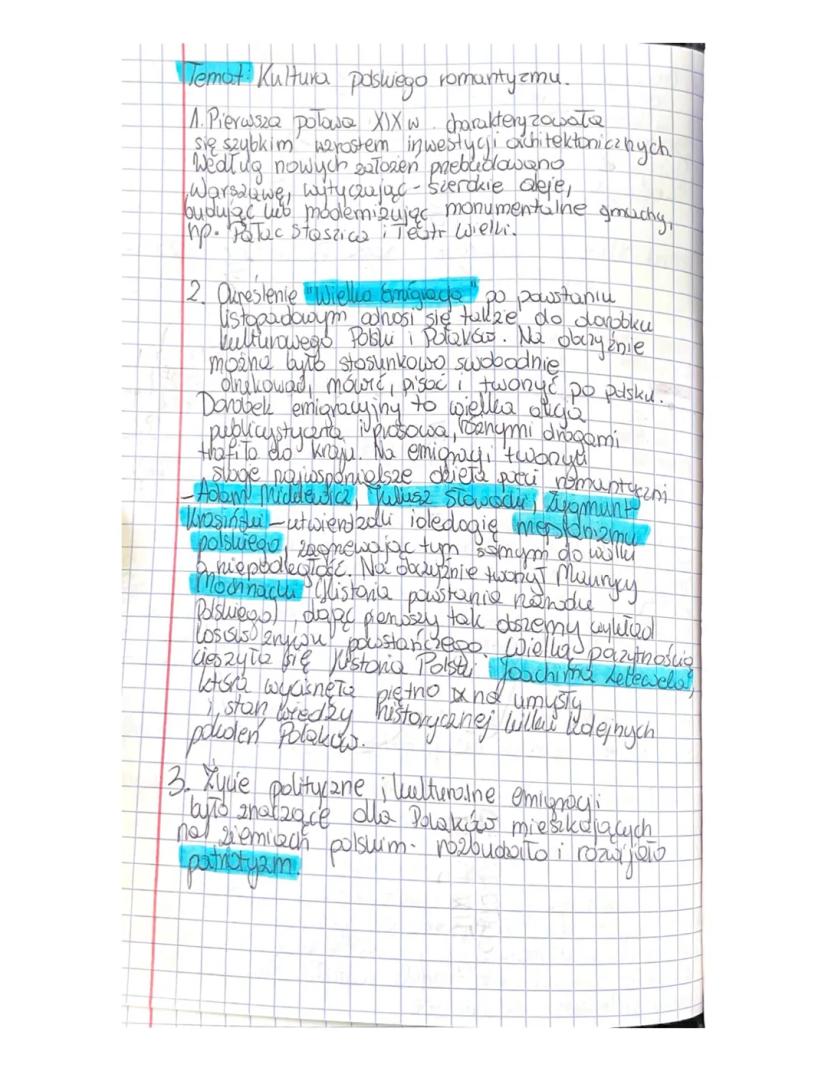 Temat: Kultura polskiego romantyzmu.
1. Pierwsza połowa XIX w. charakteryzowała
się szybkim wzrostem inwestycji architektonicznych.
Według nowych założeń przebudowano
Warszawę, wytyczając - szerokie aleje,
budując lub modernizując monumentalne gmachy,
np. Pałac Staszica i Teatr Wielki.
2. Określenie "Wielka Emigracja" po powstaniu
listopadowym odnosi się także do dorobku
kulturowego Polski i Polaków. Na obczyźnie
można było stosunkowo swobodnie
drukować, mówić, pisać i tworzyć po polsku.
Dorobek emigracyjny to wielka akcja
publicystyczna i prasowa, różnymi drogami
trafiło do kraju. Na emigracji tworzyli
swoje najwspanialsze dzieła poeci romantyczni
- Adam Mickiewicz, Juliusz Słowacki, Zygmunt
Krasiński - utwierdzali ideologię mesjanizmu
polskiego, zagrzewając tym samym do walki
o niepodległość. Na obczyźnie tworzył Maurycy
Mochnacki (Historia powstania narodu
Polskiego), dając pierwszy tak obszerny wykład
losów zrywu powstańczego. Wielką poczytnością
cieszyła się Historia Polski Joachima Lelewela,
która wycisnęła piętno na umysły
i stan wiedzy historycznej kilku kolejnych
pokoleń Polaków.
3. Życie polityczne i kulturalne emigracji
było znaczące dla Polaków mieszkających
na ziemiach polskim - rozbudziło i rozwijało
patriotyzm.